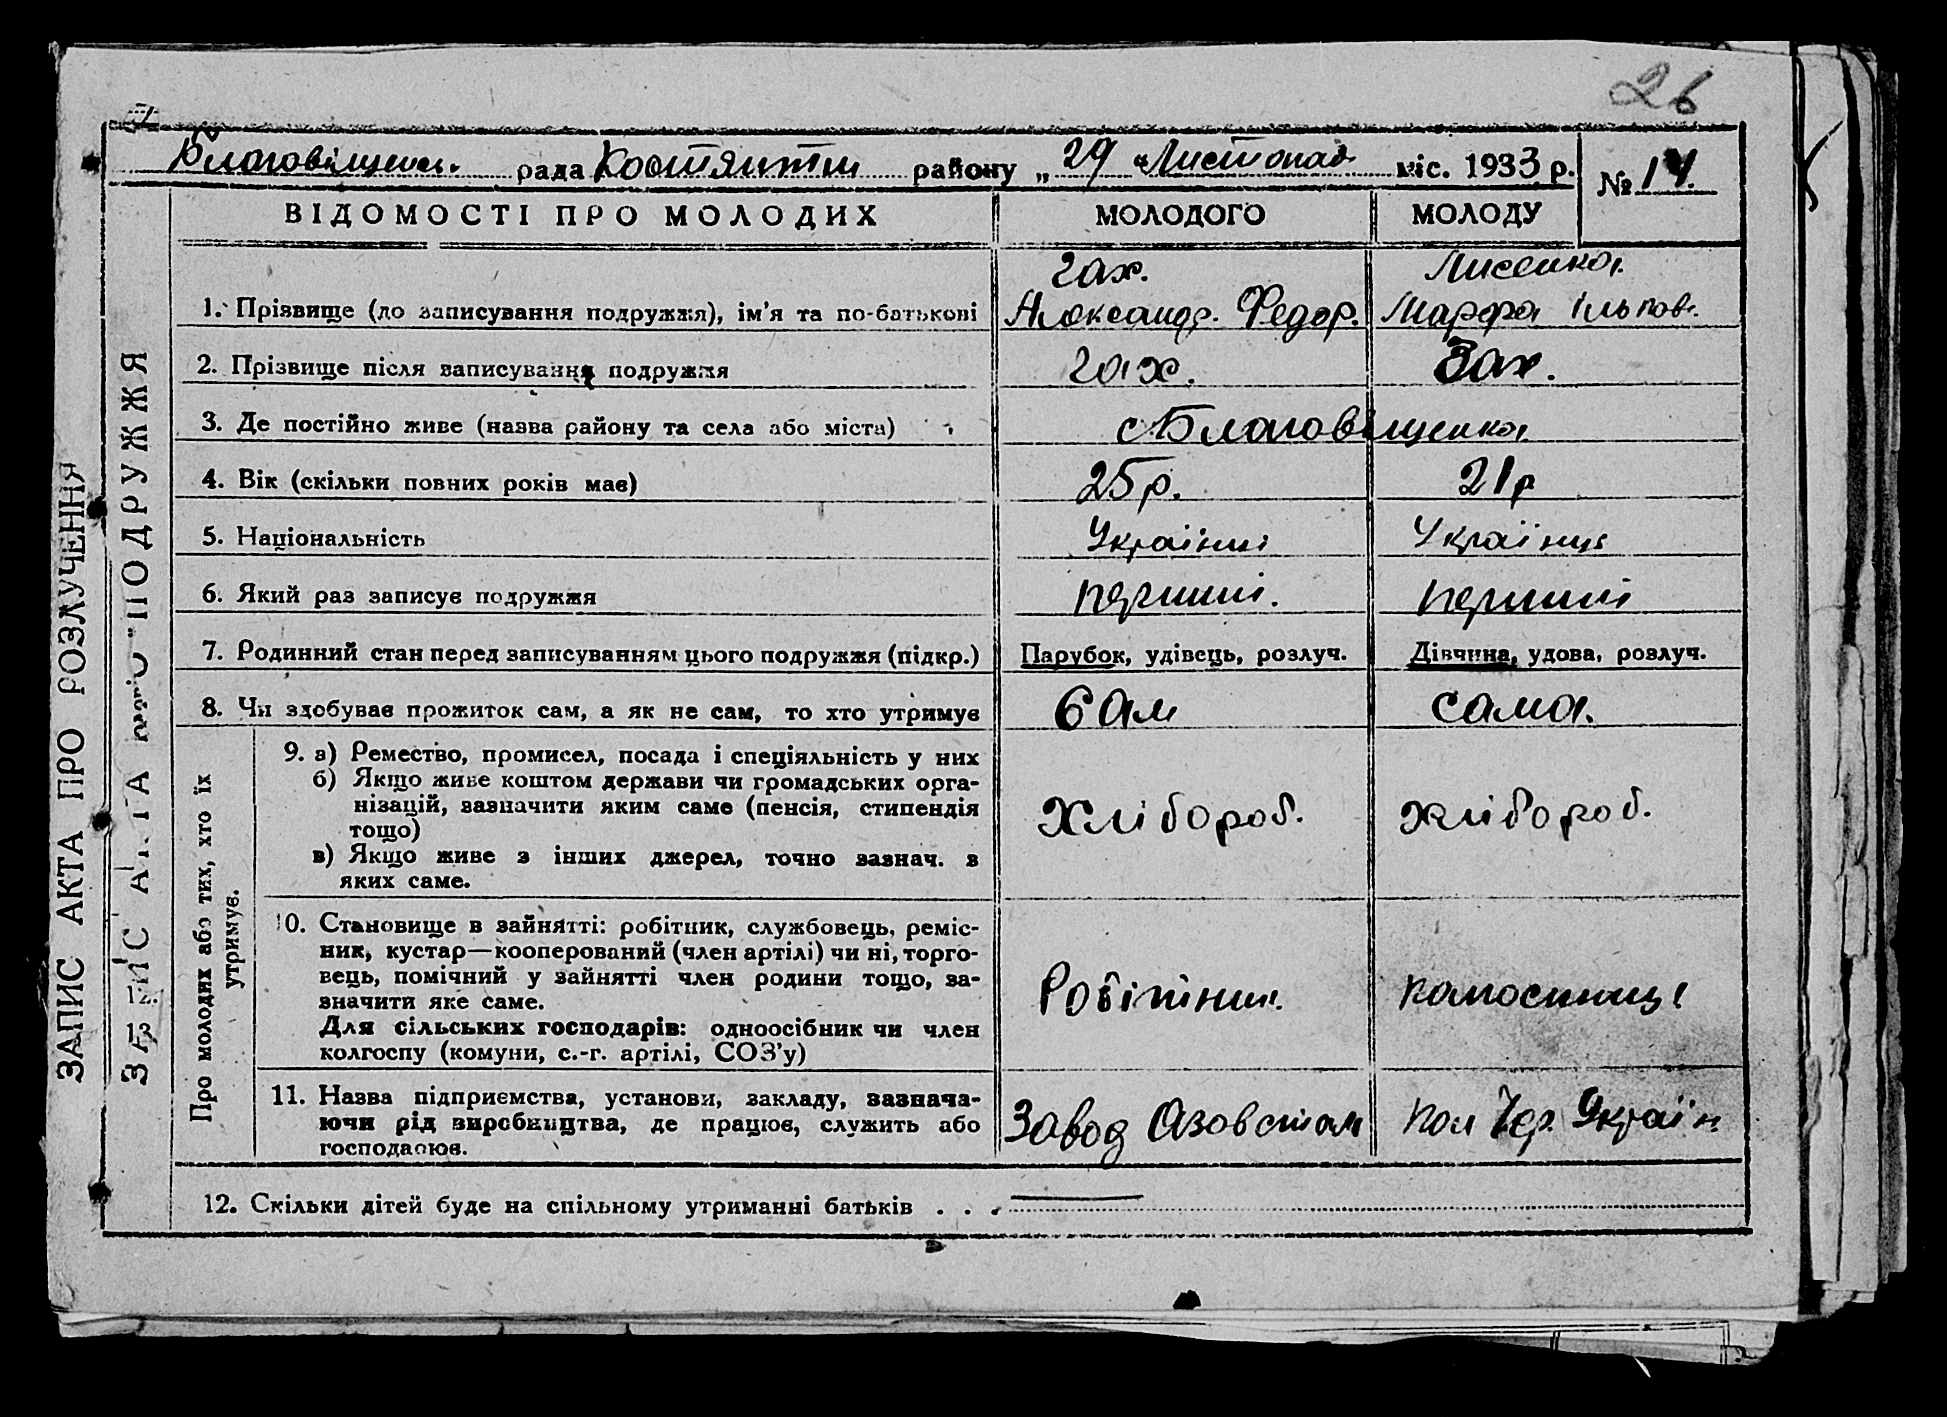 26
Благовіщенс. рада Костянтин району „ 29 " Листопад міс. 1933 р.
№ 14.
ВІДОМОСТІ ПРО МОЛОДИХ МОЛОДОГО МОЛОДУ
Зах. Лисенко.
1. Прізвище (до записування подружжя), ім'я та по-батькові Александр. Федор. Марфа Ільпов.
2. Прізвище після записування подружжя Зах. Зах.
3. Де постійно живе (назва району та села або міста) с. Благовіщенка
4. Вік (скільки повних років має) 25 р. 21 р
5. Національність Українці Українці
6. Який раз записує подружжя перший. перший
7. Родинний стан перед записуванням цього подружжя (підкр.) Парубок, удівець, розлуч. Дівчина, удова, розлуч.
8. Чи здобуває прожиток сам, а як не сам, то хто утримує Сам сама.
Про молодих або тих, хто їх
утримує.
9. а) Ремество, промисел, посада і спеціяльність у них
б) Якщо живе коштом держави чи громадських орга-
нізацій, зазначити яким саме (пенсія, стипендія
тощо)
в) Якщо живе з інших джерел, точно зазнач. з
яких саме.
Хлібороб. Хлібороб.
10. Становище в зайнятті: робітник, службовець, реміс-
ник, кустар—кооперований (член артілі) чи ні, торго-
вець, помічний у зайнятті член родини тощо, за-
значити яке саме.
Для сільських господарів: одноосібник чи член
колгоспу (комуни, с.-г. артілі, СОЗ'у)
Робітник.
11. Назва підприємства, установи, закладу, зазнача-
ючи рід виробництва, де працює, служить або
господарює.
Завод Азовстал Кол Чер. Україн
12. Скільки дітей буде на спільному утриманні батьків . . .
ЗАПИС АКТА ПРО ПОДРУЖЖЯ
ЗАПИС АКТА ПРО РОЗЛУЧЕННЯ
12.
13